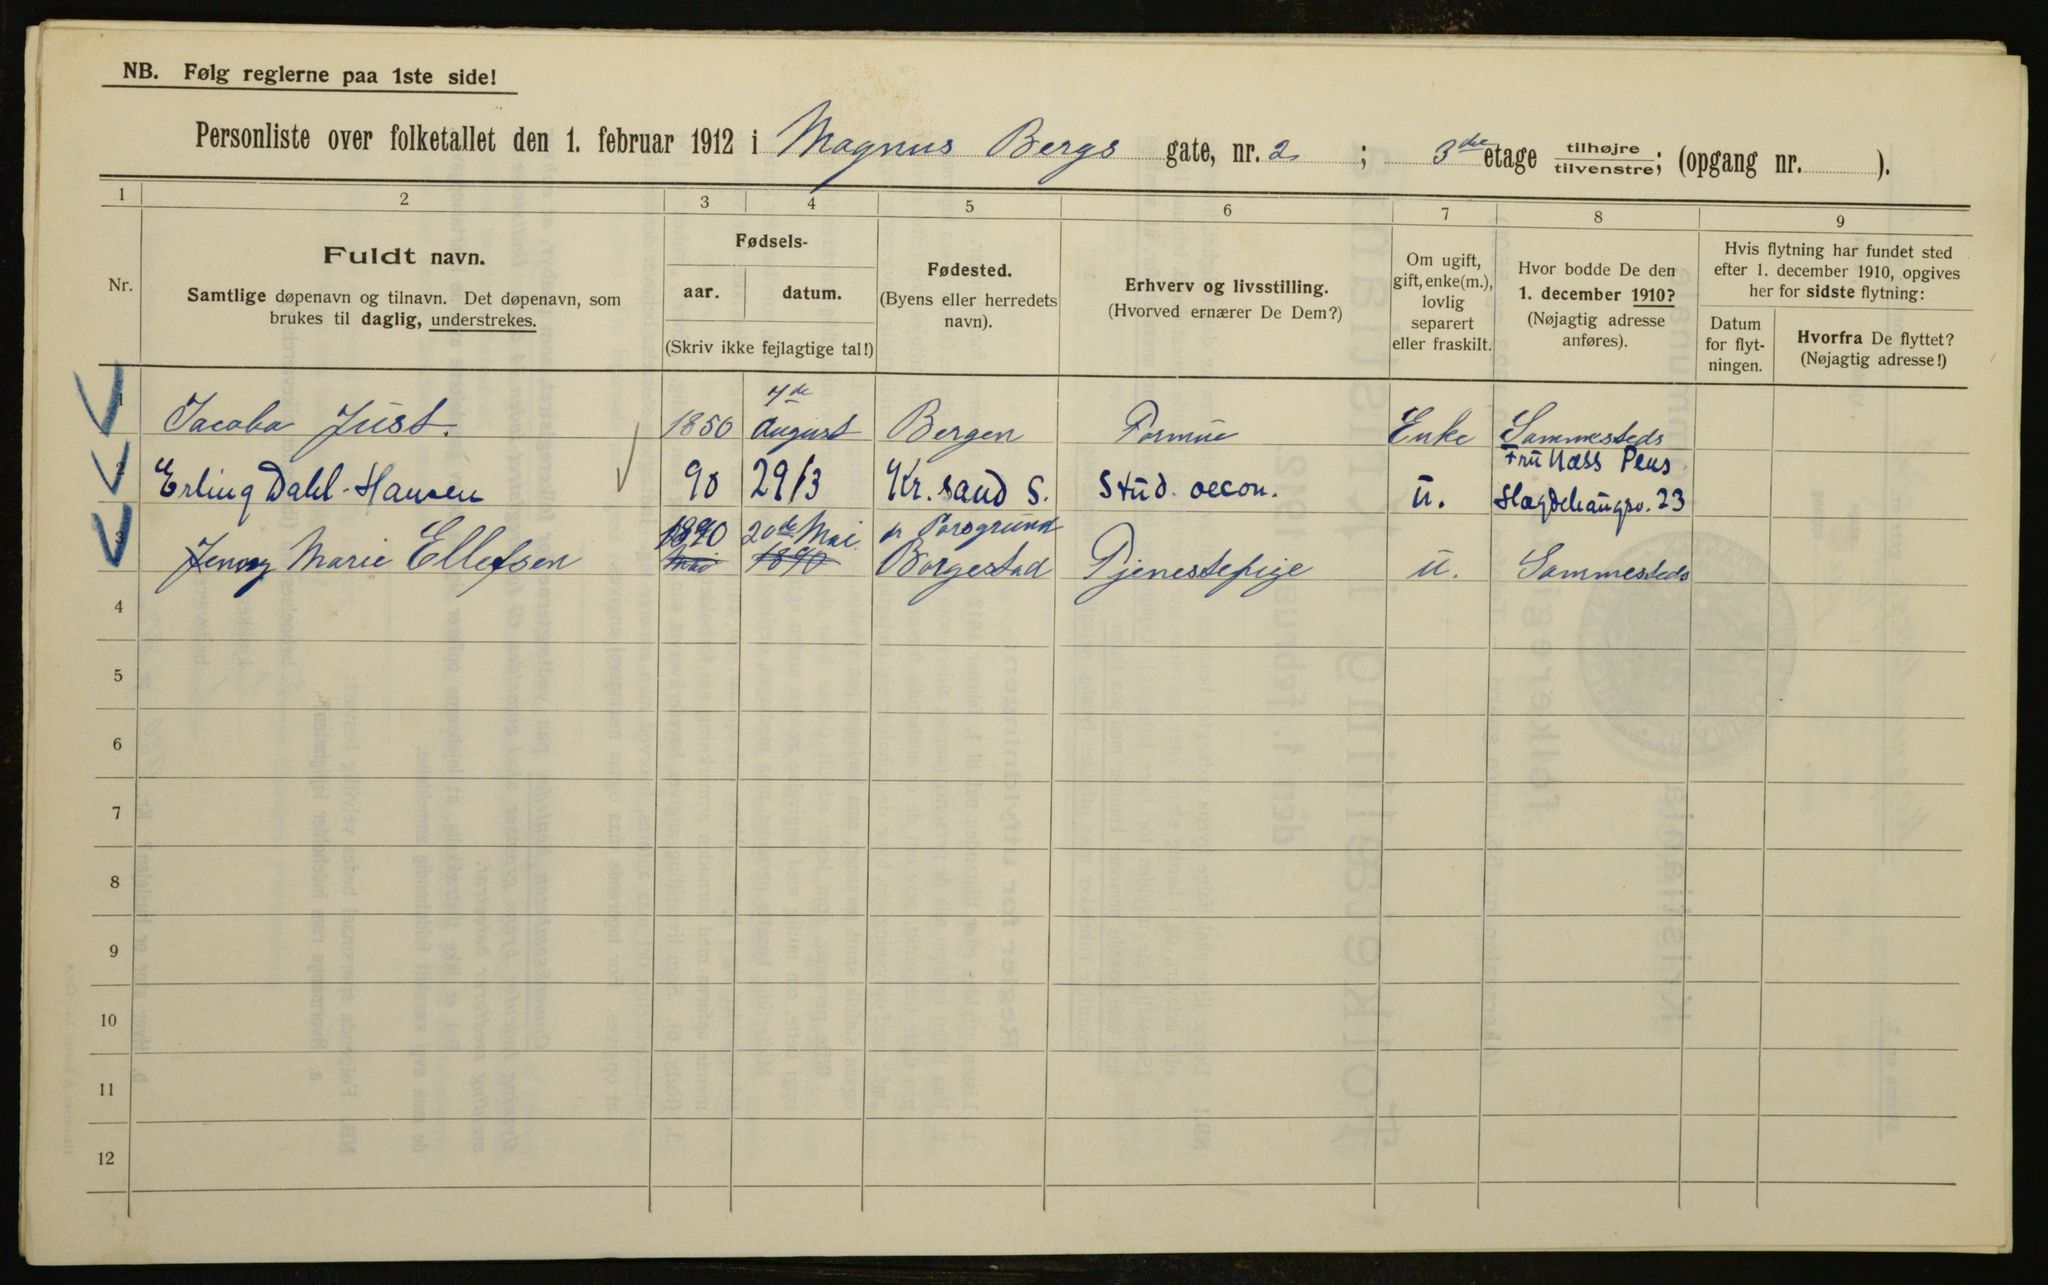 NB. Følg reglerne paa 1ste side!
Personliste over folketallet den 1. februar 1912 i Magnus Bergs gate, nr. 2 ; 3de etage tilhøjre tilvenstre; (opgang nr. ).
1 2 3 4 5 6 7 8 9
Nr.
Fuldt navn.
Samtlige døpenavn og tilnavn. Det døpenavn, som
brukes til daglig, understrekes.
Fødsels-
aar. datum.
(Skriv ikke fejlagtige tal!)
Fødested.
(Byens eller herredets
navn).
Erhverv og livsstilling.
(Hvorved ernærer De Dem?)
Om ugift,
gift, enke(m.),
lovlig
separert
eller fraskilt.
Hvor bodde De den
1. december 1910?
(Nøjagtig adresse
anføres).
Hvis flytning har fundet sted
efter 1. december 1910, opgives
her for sidste flytning:
Datum
for flyt-
ningen.
Hvorfra De flyttet?
(Nøjagtig adresse!)
1 Jacoba Just. 1850 4de August Bergen Formue Enke Sammesteds
2 Erling Dahl-Hansen 90 29/3 Kr. sand S. Stud. oecon. u. Fru Næss Pens. Hægdehaugsv. 23
3 Jenny Marie Ellefsen 1890 Mai 20de Mai 1890 pr Porsgrund Borgestad Tjenestepige u. Sammesteds
4
5
6
7
8
9
10
11
12